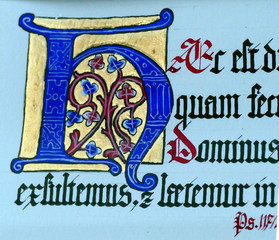 HÆc est d
quam fec
Dominus
exsultemus, & lætemur in
Ps. 117,